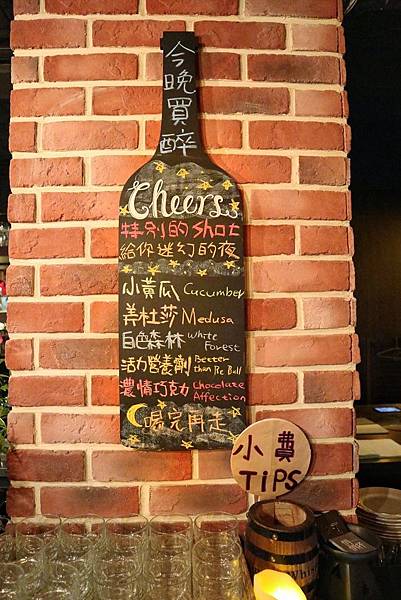 今晚買醉
Cheers
特別的shot
給你迷幻的夜
小黃瓜 Cucumber
美杜莎 Medusa
白色森林 White Forest
活力營養劑 Better than Re Bull
濃情巧克力 Chocolate Affection
喝完再走
小費
TiPS